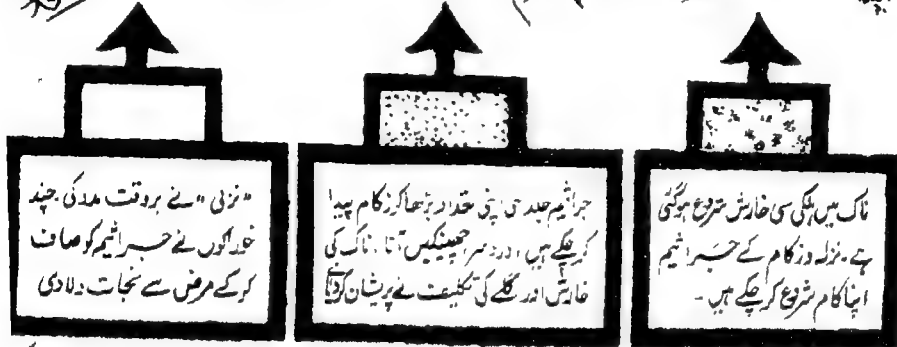 ناک میں ہلکی سی خارش شروع ہوگئی
ہے۔ نزلہ و زکام کے جراثیم
اپنا کام شروع کر چکے ہیں۔
جراثیم جلد ہی اپنی تعداد بڑھا کر زکام پیدا
کر چکے ہیں، درد سر، چھینکیں آنا، ناک کی
خارش اور گلے کی تکلیف نے پریشان کر دیا
"نزلی" نے بروقت مدد کی۔ چند
خوراکوں نے جراثیم کو صاف
کر کے مرض سے نجات دلا دی